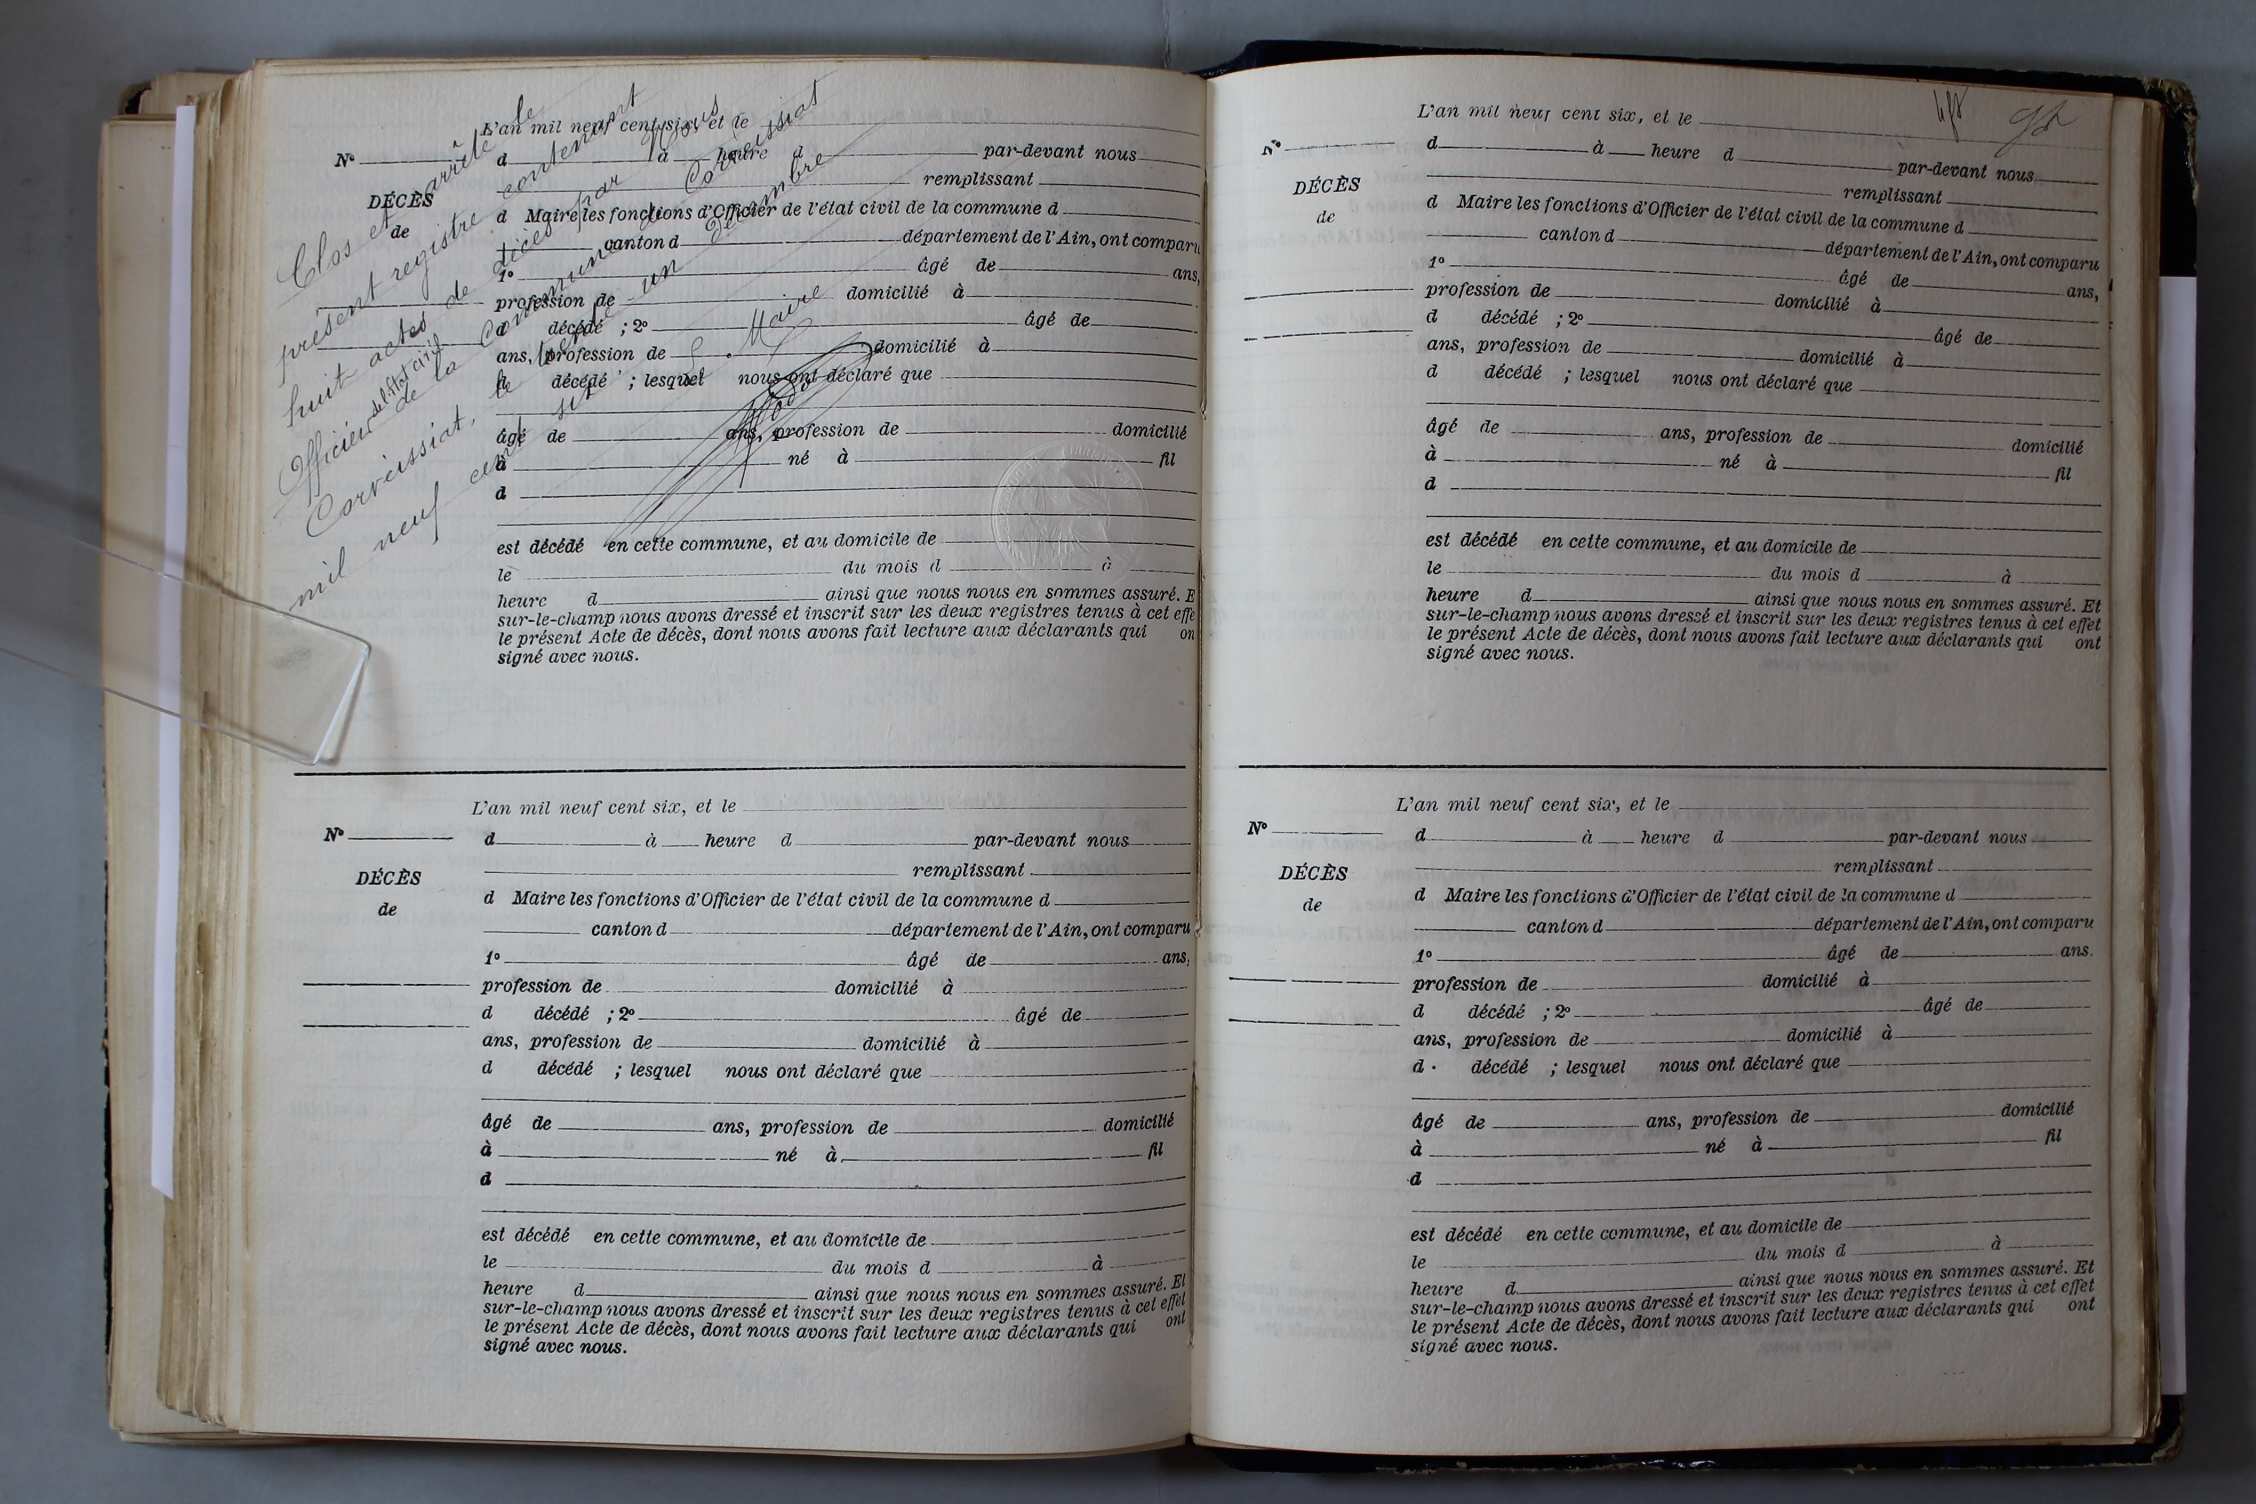 Clos et arrêté le
présent registre contenant
huit actes de décès par nous
Officier de l'Etat civil
de la Commune de Corveissiat
Corveissiat, le trente un décembre
mil neuf cent six
Le Maire
L'an mil neuf cent six, et le
N° d à heure d par-devant nous
DÉCÈS remplissant
de d Maire les fonctions d'Officier de l'état civil de la commune d
canton d département de l'Ain, ont comparu
1° âgé de ans,
profession de domicilié à
d décédé ; 2° âgé de
ans, profession de domicilié à
d décédé ; lesquel nous ont déclaré que
âgé de ans, profession de domicilié
à né à fil
d
est décédé en cette commune, et au domicile de
le du mois d à
heure d ainsi que nous nous en sommes assuré. E
sur-le-champ nous avons dressé et inscrit sur les deux registres tenus à cet effe
le présent Acte de décès, dont nous avons fait lecture aux déclarants qui on
signé avec nous.
L'an mil neuf cent six, et le
N° d à heure d par-devant nous
DÉCÈS remplissant
de d Maire les fonctions d'Officier de l'état civil de la commune d
canton d département de l'Ain, ont comparu
1° âgé de ans,
profession de domicilié à
d décédé ; 2° âgé de
ans, profession de domicilié à
d décédé ; lesquel nous ont déclaré que
âgé de ans, profession de domicilié
à né à fil
d
est décédé en cette commune, et au domicile de
le du mois d à
heure d ainsi que nous nous en sommes assuré. Et
sur-le-champ nous avons dressé et inscrit sur les deux registres tenus à cet effet
le présent Acte de décès, dont nous avons fait lecture aux déclarants qui ont
signé avec nous.
L'an mil neuf cent six, et le
N° d à heure d par-devant nous
DÉCÈS remplissant
de d Maire les fonctions d'Officier de l'état civil de la commune d
canton d département de l'Ain, ont comparu
1° âgé de ans,
profession de domicilié à
d décédé ; 2° âgé de
ans, profession de domicilié à
d décédé ; lesquel nous ont déclaré que
âgé de ans, profession de domicilié
à né à fil
d
est décédé en cette commune, et au domicile de
le du mois d à
heure d ainsi que nous nous en sommes assuré. Et
sur-le-champ nous avons dressé et inscrit sur les deux registres tenus à cet effet
le présent Acte de décès, dont nous avons fait lecture aux déclarants qui ont
signé avec nous.
L'an mil neuf cent six, et le
N° d à heure d par-devant nous
DÉCÈS remplissant
de d Maire les fonctions d'Officier de l'état civil de la commune d
canton d département de l'Ain, ont comparu
1° âgé de ans.
profession de domicilié à
d décédé ; 2° âgé de
ans, profession de domicilié à
d décédé ; lesquel nous ont déclaré que
âgé de ans, profession de domicilié
à né à fil
d
est décédé en cette commune, et au domicile de
le du mois d à
heure d ainsi que nous nous en sommes assuré. Et
sur-le-champ nous avons dressé et inscrit sur les deux registres tenus à cet effet
le présent Acte de décès, dont nous avons fait lecture aux déclarants qui ont
signé avec nous.